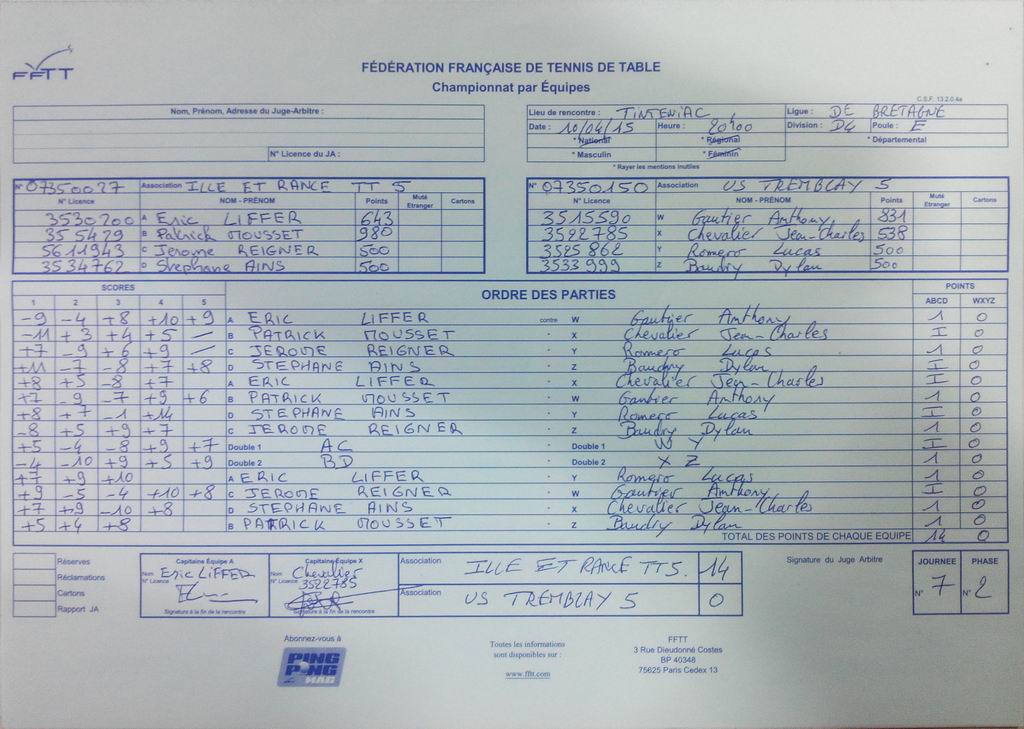 FFTT
FÉDÉRATION FRANÇAISE DE TENNIS DE TABLE
Championnat par Équipes
C.S.F. 13.2.0.4a
Nom, Prénom, Adresse du Juge-Arbitre :
N° Licence du JA :
Lieu de rencontre : TINTENIAC Ligue : DE BRETAGNE
Date : 10/04/15 Heure : 20h00 Division : D4 Poule : E
* National * Régional * Départemental
* Masculin * Féminin
* Rayer les mentions inutiles
N° 07350027 Association ILLE ET RANCE TT 5
N° Licence NOM - PRÉNOM Points Muté Etranger Cartons
3530200 A Eric LIFFER 643
355429 B Patrick MOUSSET 980
5611943 C Jerome REIGNER 500
3534762 D Stephane AINS 500
N° 07350150 Association US TREMBLAY 5
N° Licence NOM - PRÉNOM Points Muté Etranger Cartons
3515590 W Gautier Anthony 831
3522785 X Chevalier Jean-Charles 538
3525862 Y Romero Lucas 500
3533999 Z Baudry Dylan 500
SCORES ORDRE DES PARTIES POINTS
1 2 3 4 5 ABCD WXYZ
-9 -4 +8 +10 +9 A ERIC LIFFER contre W Gautier Anthony 1 0
-11 +3 +4 +5 - B PATRICK MOUSSET " X Chevalier Jean-Charles I 0
+7 -9 +6 +9 - C JEROME REIGNER " Y Romero Lucas 1 0
+11 -7 -8 +7 +8 D STEPHANE AINS " Z Baudry Dylan I 0
+8 +5 -8 +7 A ERIC LIFFER " X Chevalier Jean-Charles I 0
+7 -9 -7 +9 +6 B PATRICK MOUSSET " W Gautier Anthony 1 0
+8 +7 -1 +14 D STEPHANE AINS " Y Romero Lucas I 0
-8 +5 +9 +7 C JEROME REIGNER " Z Baudry Dylan 1 0
+5 -4 -8 +9 +7 Double 1 AC " Double 1 W Y I 0
-4 -10 +9 +5 +9 Double 2 BD " Double 2 X Z 1 0
+7 +9 +10 A ERIC LIFFER " Y Romero Lucas 1 0
+9 -5 -4 +10 +8 C JEROME REIGNER " W Gautier Anthony I 0
+7 +9 -10 +8 D STEPHANE AINS " X Chevalier Jean-Charles 1 0
+5 +4 +8 B PATRICK MOUSSET " Z Baudry Dylan 1 0
TOTAL DES POINTS DE CHAQUE EQUIPE 14 0
Réserves
Réclamations
Cartons
Rapport JA
Capitaine Équipe A
Nom Eric LIFFER
N° Licence
Signature à la fin de la rencontre
Capitaine Équipe X
Nom Chevalier
N° Licence 3522785
Signature à la fin de la rencontre
Association ILLE ET RANCE TT 5. 14
Association US TREMBLAY 5 0
Signature du Juge Arbitre
JOURNEE PHASE
N° 7 N° 2
Abonnez-vous à
PING PONG MAG
Toutes les informations
sont disponibles sur :
www.fftt.com
FFTT
3 Rue Dieudonné Costes
BP 40348
75625 Paris Cedex 13